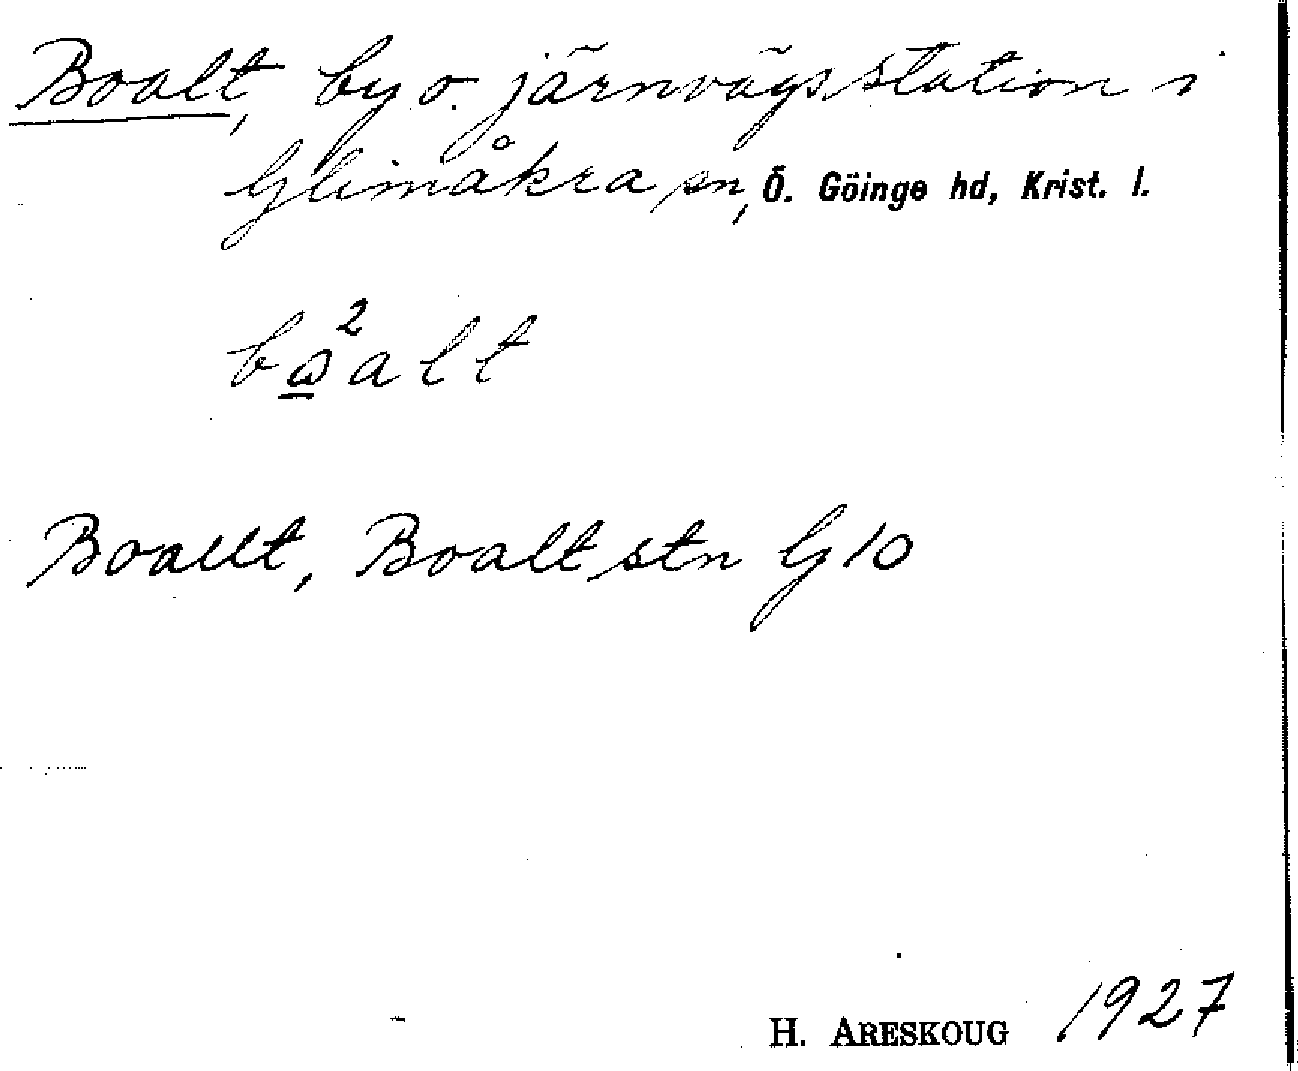 Boalt, by o. järnvägsstation i
Glimåkra sn, Ö. Göinge hd, Krist. l.
bω²alt
Boallt, Boalt stn G10
H. ARESKOUG 1927